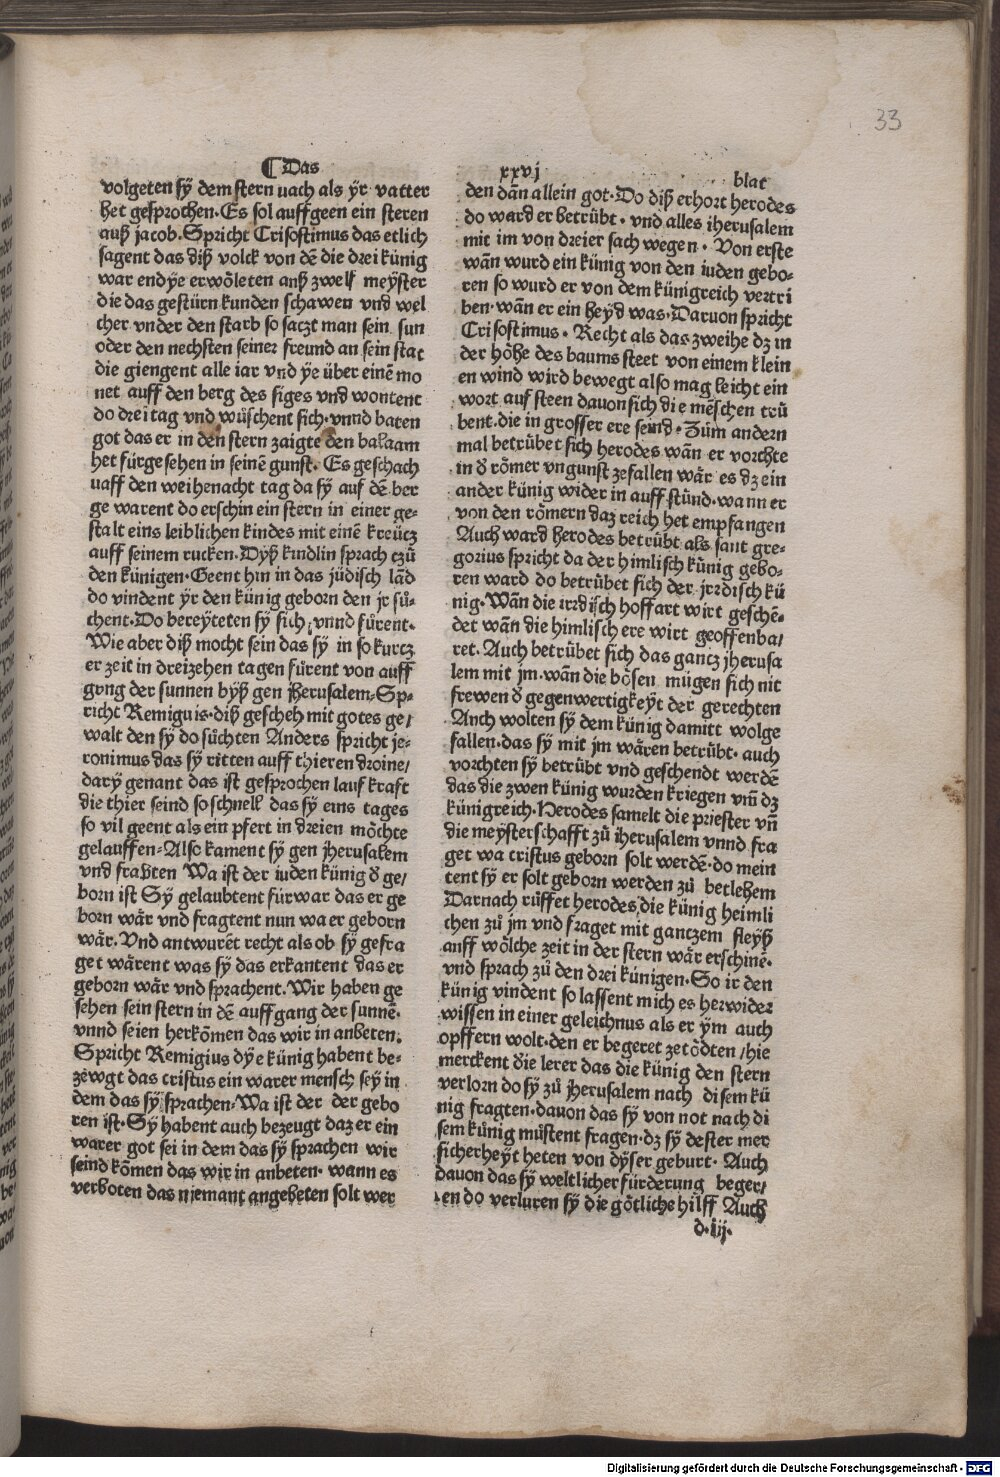 33
¶ Das xxvj blat
volgeten sÿ dem stern uach als ÿr vatter
het gesprochen. Es sol auffgeen ein steren
auß jacob. Spricht Crisostimus das etlich
sagent das diß volck von dē die drei künig
war endÿe erwöleten anß zwelf meÿster
die das gestürn kunden schawen vnd wel
cher vnder den starb so saczt man sein sun
oder den nechsten seiner freund an sein stat
die giengent alle iar vnd ÿe über einē mo
net auff den berg des siges vnd wontent
do drei tag vnd wüschent sich. vnnd baten
got das er in den stern zaigte den balaam
het fürgesehen in seinē gunst. Es geschach
uaff den weihenacht tag da sÿ auf dē ber
ge warent do erschin ein stern in einer ge-
stalt eins leiblichen kindes mit einē kreücz
auff seinem rucken. Dÿß kindlin sprach czů
den künigen. Geent hin in das jüdisch lād
do vindent ÿr den künig geborn den jr sů-
chent. Do bereÿteten sÿ sich, vnnd fůrent.
Wie aber diß mocht sein das sÿ in so kurcz
er zeit in dreizehen tagen fůrent von auff
gang der sunnen bÿß gen jherusalem. Sp-
richt Remiguis. diß gescheh mit gotes ge/
walt den sÿ do sůchten Anders spricht je-
ronimus das sÿ ritten auff thieren droine/
darÿ genant das ist gesprochen lauf kraft
die thier seind so schnell das sÿ eins tages
so vil geent als ein pfert in dreien möchte
gelauffen. Also kament sÿ gen jherusalem
vnd fraßten Wa ist der iuden künig d ge/
born ist Sÿ gelaubtent fürwar das er ge
born wär vnd fragtent nun wa er geborn
wär. Vnd antwurēt recht als ob sÿ gefra
get wärent was sÿ das erkantent das er
geborn wär vnd sprachent. Wir haben ge
sehen sein stern in dē auffgang der sunnē.
vnnd seien herkōmen das wir in anbeten.
Spricht Remigius dÿe künig habent be-
zewgt das cristus ein warer mensch seÿ in
dem das sÿ sprachen. Wa ist der der gebo
ren ist. Sÿ habent auch bezeugt daz er ein
warer got sei in dem das sÿ sprachen wir
seind kōmen das wir in anbeten. wann es
verboten das niemant angebeten solt wer
den dān allein got. Do diß erhort herodes
do ward er betrübt. vnd alles iherusalem
mit im von dreier sach wegen. Von erste
wān wurd ein künig von den iuden gebo-
ren so wurd er von dem künigreich vertri
ben. wān er ein heÿd was. Daruon spricht
Crisostimus. Recht als das zweihe dz in
der höhe des baums steet von einem klein
en wind wird bewegt also mag leicht ein
wort auf steen davon sich die mēschen trü
bent. die in grosser ere seind. Zům andern
mal betrübet sich herodes wān er vorchte
in d römer vngunst zefallen wär es dz ein
ander künig wider in auff stünd. wann er
von den römern daz reich het empfangen
Auch ward herodes betrübt als sant gre-
gorius spricht da der himlisch künig gebo-
ren ward do betrübet sich der jrrdisch kü
nig. Wān die irrdisch hoffart wirt geschē-
det wān die himlisch ere wirt geoffenba/
ret. Auch betrübet sich das gancz jherusa
lem mit jm. wān die bösen mügen sich nit
frewen d gegenwertigkeÿt der gerechten
Anch wolten sÿ dem künig damitt wolge
fallen. das sÿ mit jm wären betrübt. auch
vorchten sÿ betrübt vnd geschendt werdē
das die zwen künig wurden kriegen vm̄ dz
künigreich. Herodes samelt die priester vn̄
die meÿsterschafft zů iherusalem vnnd fra
get wa cristus geborn solt werdē. do mein
tent sÿ er solt geborn werden zů betlehem
Darnach růffet herodes die künig heimli
chen zů jm vnd fraget mit gantzem fleÿß
auff wölche zeit in der stern wär erschinē.
vnd sprach zů den drei künigen. So ir den
künig vindent so lassent mich es herwider
wissen in einer geleichnus als er ÿm auch
opffern wolt. den er begeret zetödten / hie
merckent die lerer das die künig den stern
verlorn do sÿ zů jherusalem nach disem kü
nig fragten. davon das sÿ von not nach di
sem künig můstent fragen. dz sÿ dester mer
sicherheÿt heten von dÿser geburt. Auch
davon das sÿ weltlicher fürderung beger/
ten do verluren sÿ die götliche hilff Auch
d.iij.
Digitalisierung gefördert durch die Deutsche Forschungsgemeinschaft - DFG